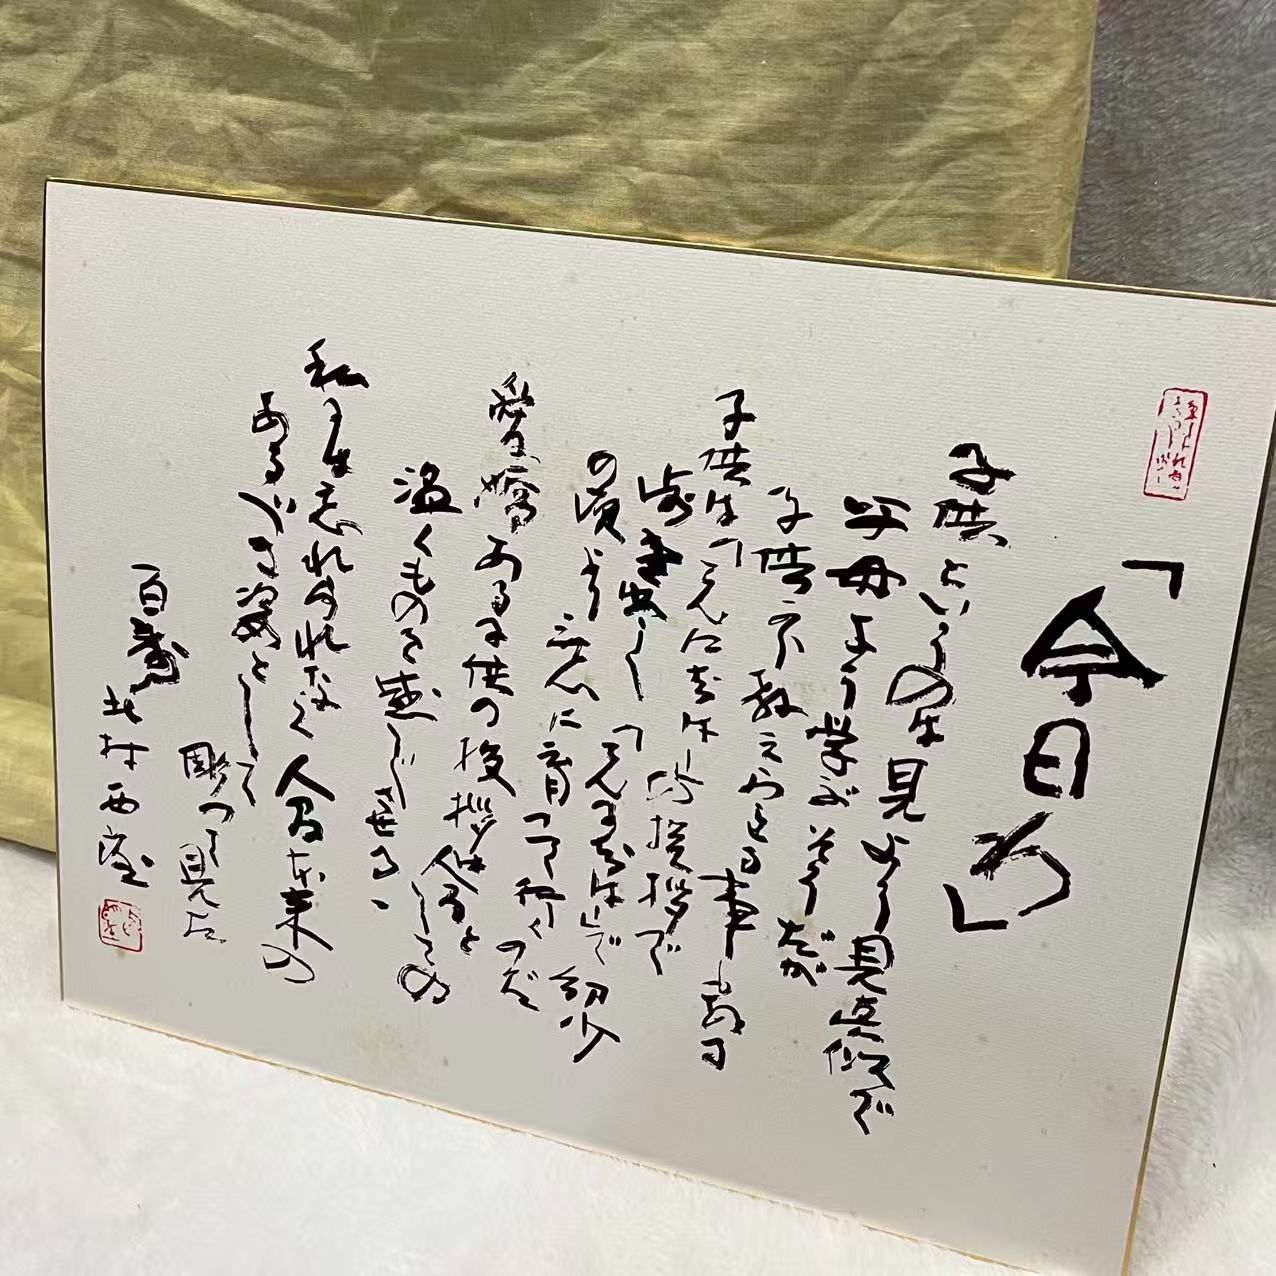 「今日わ」
子供というのは見よう見真似で
父母より学ぶそうだが
子供に教えられる事もある
子供は「こんにちは」の挨拶で
始まり「こんにちは」で幼少
の頃より に育って行くのだ
愛嬌ある子供の挨拶は人間としての
温くものを感じさせる、
私には忘れられなく人間本来の
あるべき姿として
彫って見た
百寿 北村西望